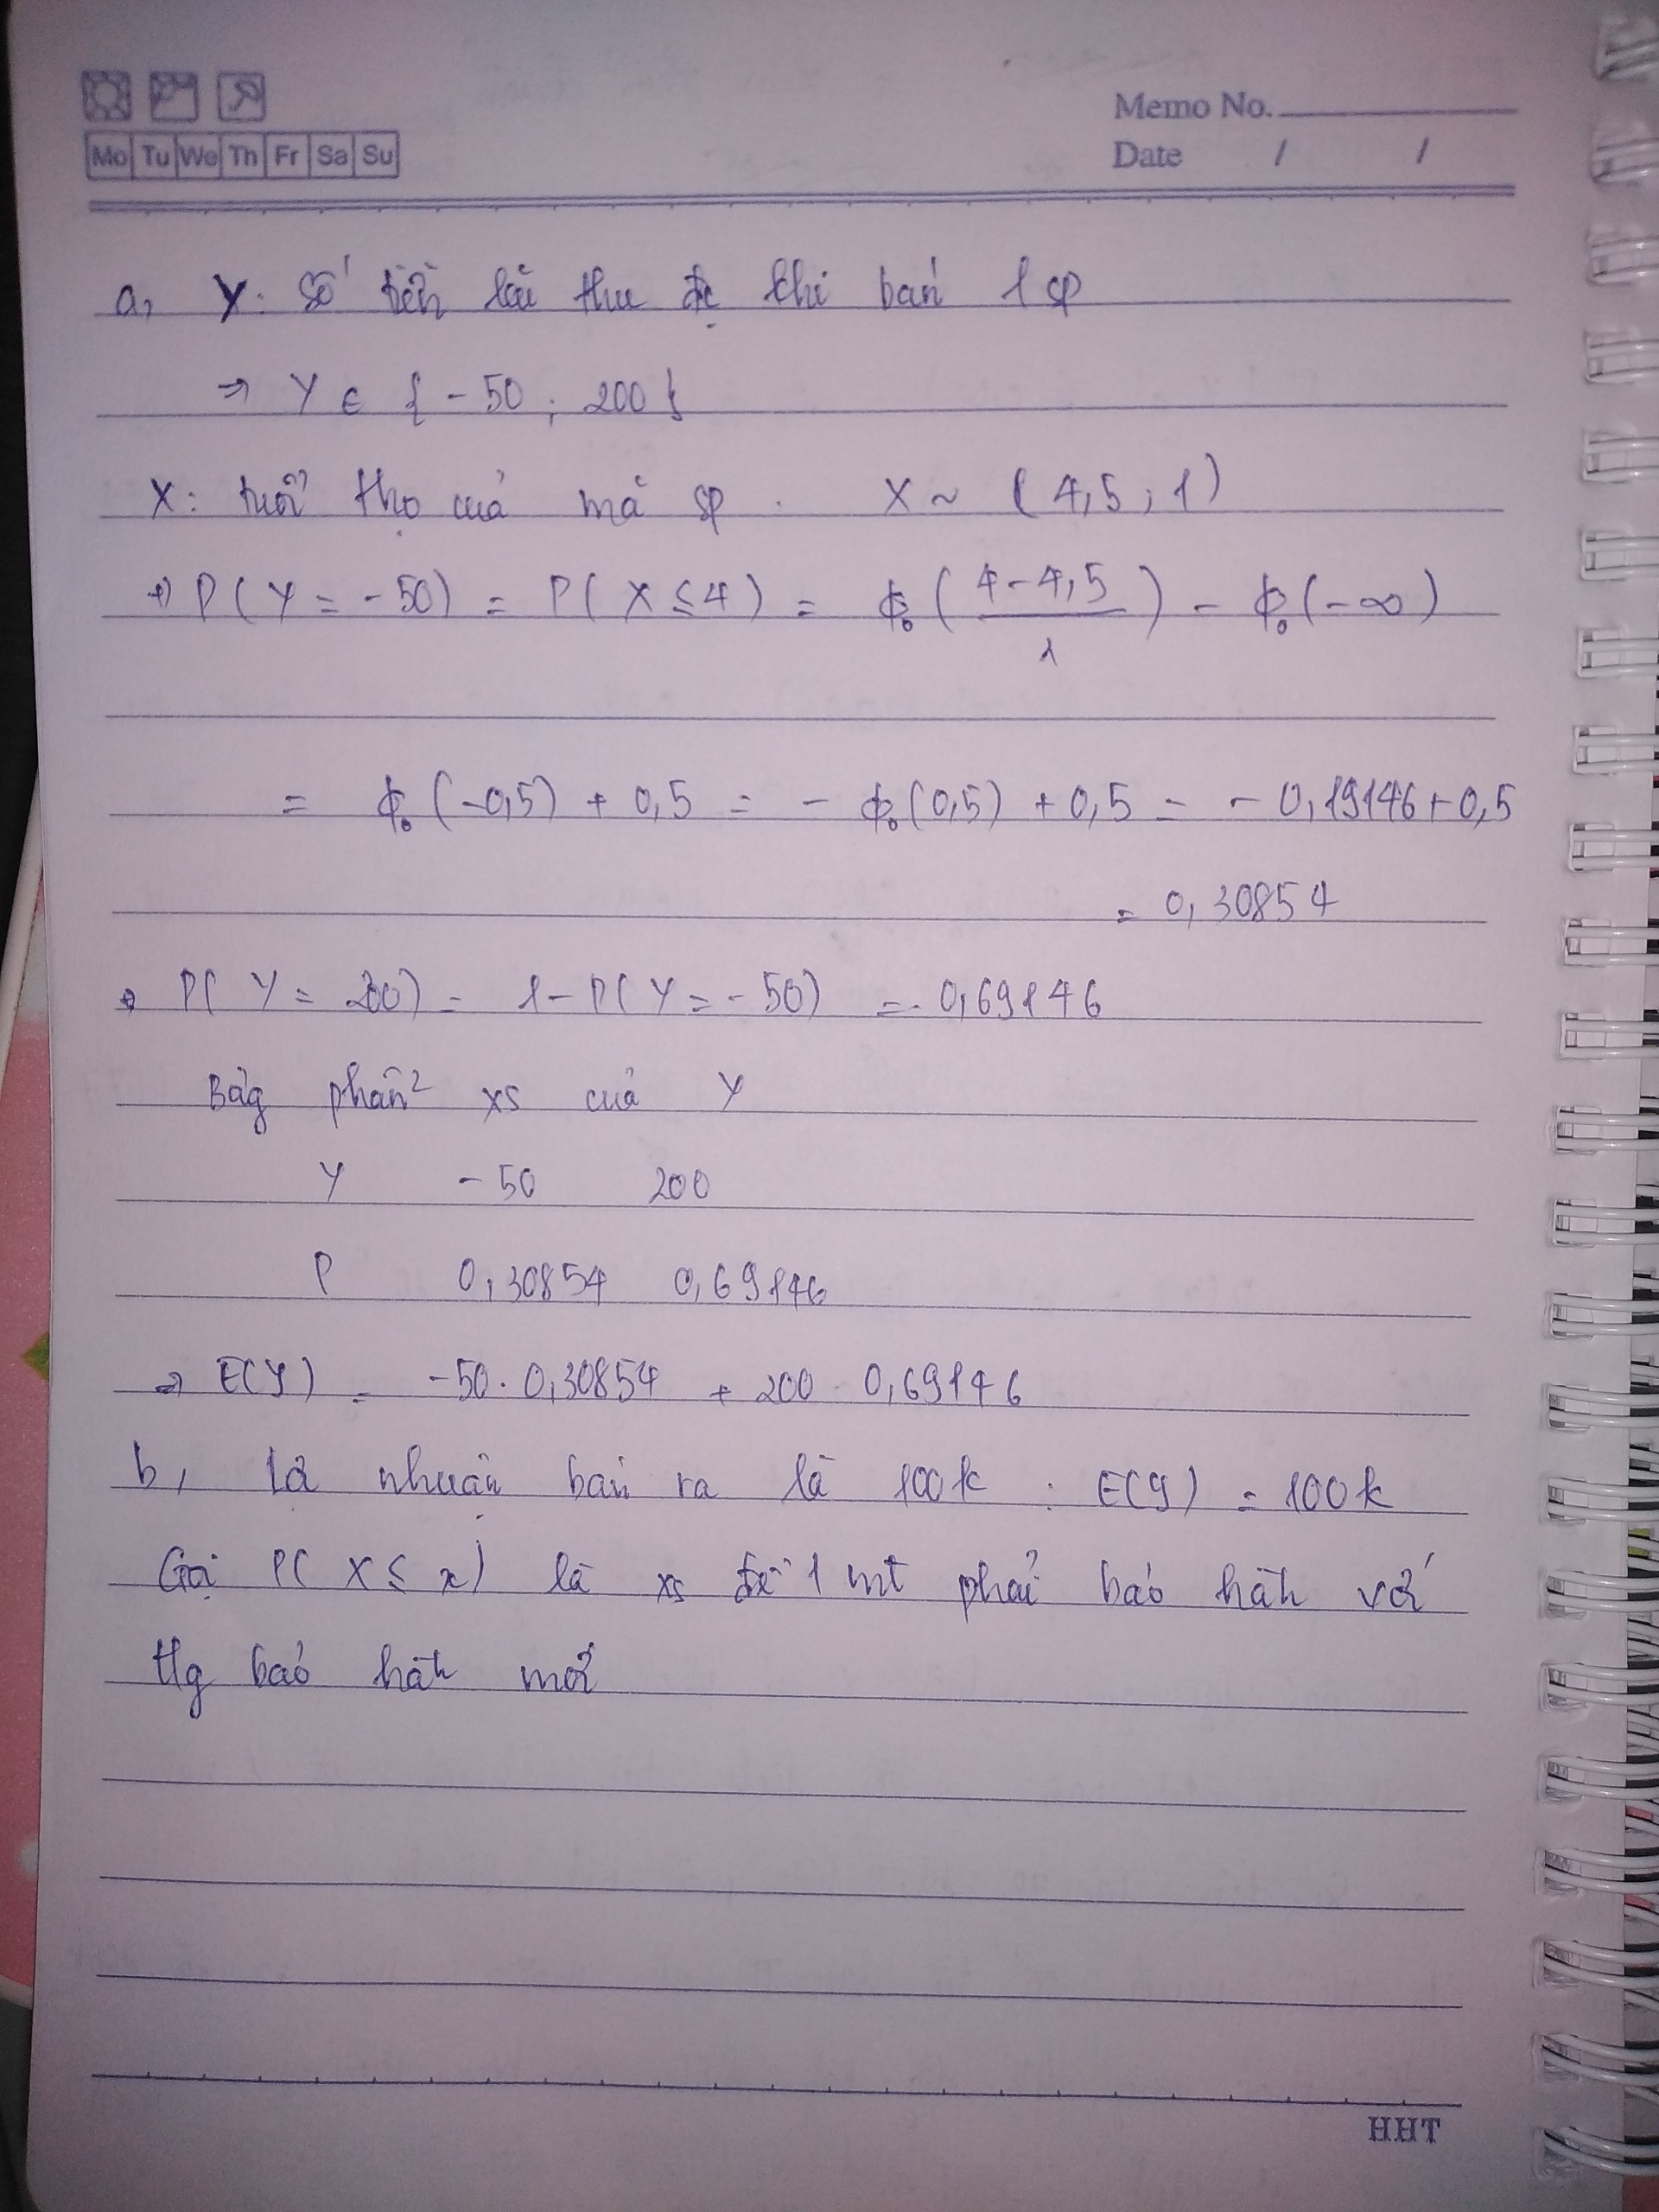 Memo No.
Mo Tu We Th Fr Sa Su
Date / /
a, Y: Số tiền lãi thu đc khi bán 1 sp
⇒ Y ∈ { -50 ; 200 }
X: tuổi thọ của mà sp . X ~ ( 4,5 ; 1 )
+) P( Y = -50) = P( X ≤ 4 ) = Φ₀ ( (4 - 4,5)/1 ) - Φ₀ (-∞)
= Φ₀ (-0,5) + 0,5 = - Φ₀ (0,5) + 0,5 = - 0,19146 + 0,5
= 0,30854
P( Y = 200) = 1 - P( Y = -50) = 0,69146
Bảg phân² xs của Y
Y -50 200
P 0,30854 0,69146
⇒ E(Y) = -50 . 0,30854 + 200 . 0,69146
b, Lợi nhuận bán ra là 100k : E(Y) = 100k
Gọi P( X ≤ x) là xs để 1 mt phải bảo hàh với
tg bảo hàh mới
HHT